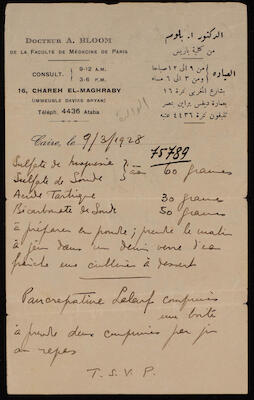 DOCTEUR A. BLOOM
DE LA FACULTÉ DE MÉDECINE DE PARIS
CONSULT. { 9-12 A.M. 3-6 P.M.
16, CHAREH EL-MAGHRABY
(IMMEUBLE DAVIES BRYAN)
Téléph. 4436 Ataba
الدكتور ا. بلوم
من كلية باريس
العيادة { من ٩ الى ١٢ صباحا
ومن ٣ الى ٦ مساء
بشارع المغربى نمرة ١٦
بعمارة ديفس براين بمصر
تليفون نمرة ٤٤٣٦ عتبه
Caire, le 9/3/1928
75789
Sulfate de magnesie
Sulfate de Soude } āā 60 grammes
Acide Tartrique 30 grames
Bicarbonate de Soude 50 grames
à préparer en poudre; prendre le matin
à jeun dans un demi verre d'eau
fraîche une cuillerée à dessert
Pancrepatine Laleuf comprimés
une boite
à prendre deux comprimés par jour
au repas
T. S. V. P.